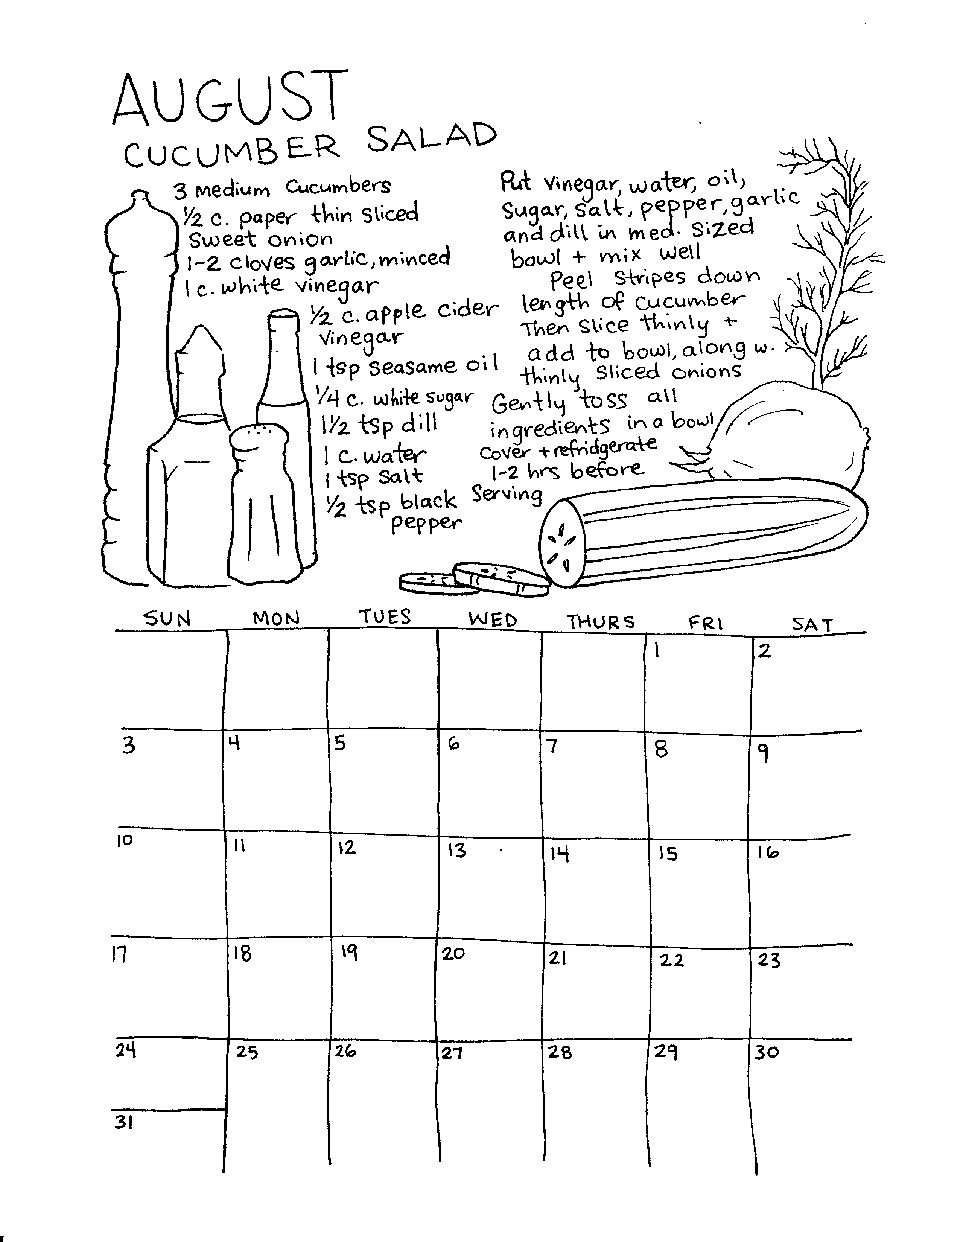 AUGUST
CUCUMBER SALAD
3 medium Cucumbers
1/2 c. paper thin sliced
Sweet onion
1-2 cloves garlic, minced
1 c. white vinegar
1/2 c. apple cider
vinegar
1 tsp seasame oil
1/4 c. white sugar
1 1/2 tsp dill
1 c. water
1 tsp salt
1/2 tsp black
pepper
Put vinegar, water, oil,
Sugar, salt, pepper, garlic
and dill in med. sized
bowl + mix well
Peel stripes down
length of cucumber
Then slice thinly +
add to bowl, along w.
thinly sliced onions
Gently toss all
ingredients in a bowl
Cover + refridgerate
1-2 hrs before
Serving
SUN MON TUES WED THURS FRI SAT
1 2
3 4 5 6 7 8 9
10 11 12 13 14 15 16
17 18 19 20 21 22 23
24 25 26 27 28 29 30
31